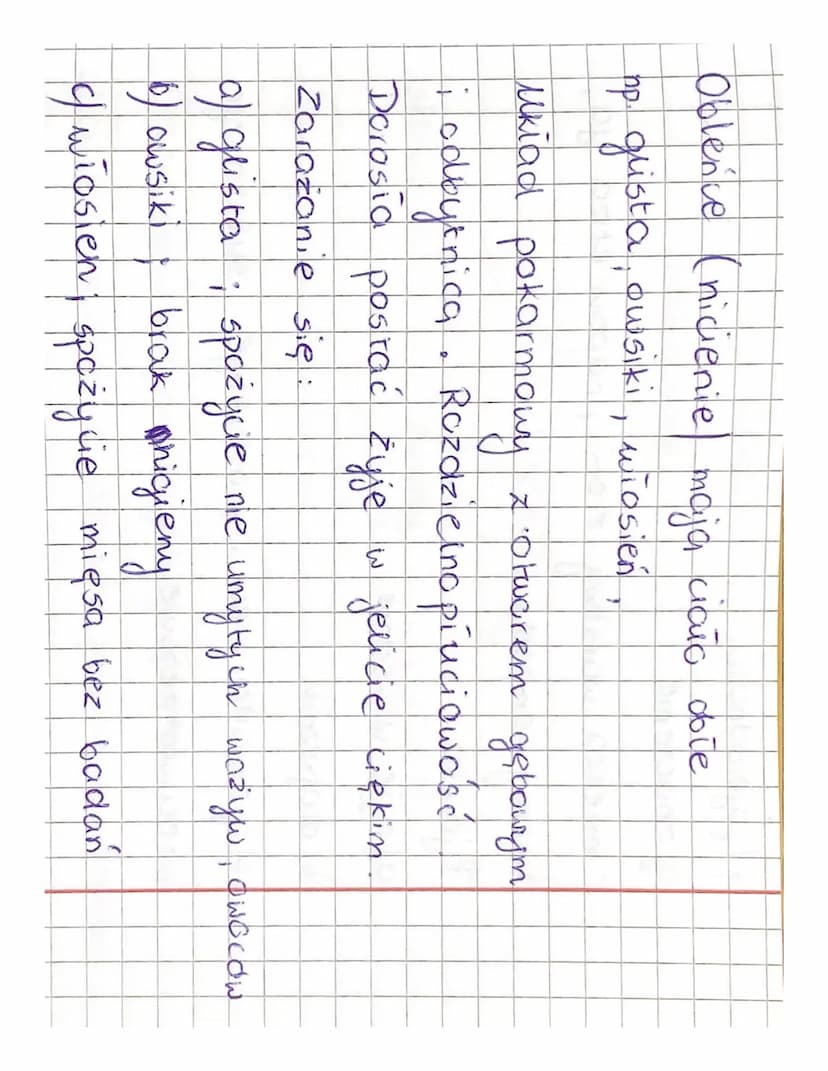 Obleńce (nicienie) mają ciało obłe
np. glista, owsiki, włosień,
Układ pokarmowy z otworem gębowym
i odbytnicą. Rozdzielnopłuciowość.
Dorosła postać żyje w jelicie ciękim.
Zarażanie się:
a) glista; spożycie nie umytych ważyw, owoców
b) owsiki; brak higieny
c) włosień; spożycie mięsa bez badań